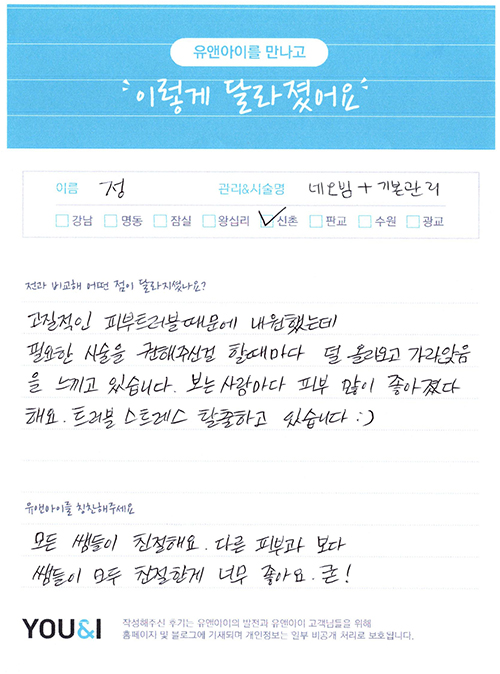 유앤아이를 만나고
이렇게 달라졌어요
이름 정 관리&시술명 네오빔 + 기본관리
강남 명동 잠실 왕십리 신촌 판교 수원 광교
전과 비교해 어떤 점이 달라지셨나요?
고질적인 피부트러블때문에 내원했는데
필요한 시술을 권해주신걸 할때마다 덜 올라오고 가라앉음
을 느끼고 있습니다. 보는사람마다 피부 많이 좋아졌다
해요. 트러블 스트레스 탈출하고 있습니다 :)
유앤아이를 칭찬해주세요
모든 쌤들이 친절해요. 다른 피부과 보다
쌤들이 모두 친절한게 너무 좋아요. 굳!
YOU&I 작성해주신 후기는 유앤아이의 발전과 유앤아이 고객님들을 위해
홈페이지 및 블로그에 기재되며 개인정보는 일부 비공개 처리로 보호됩니다.